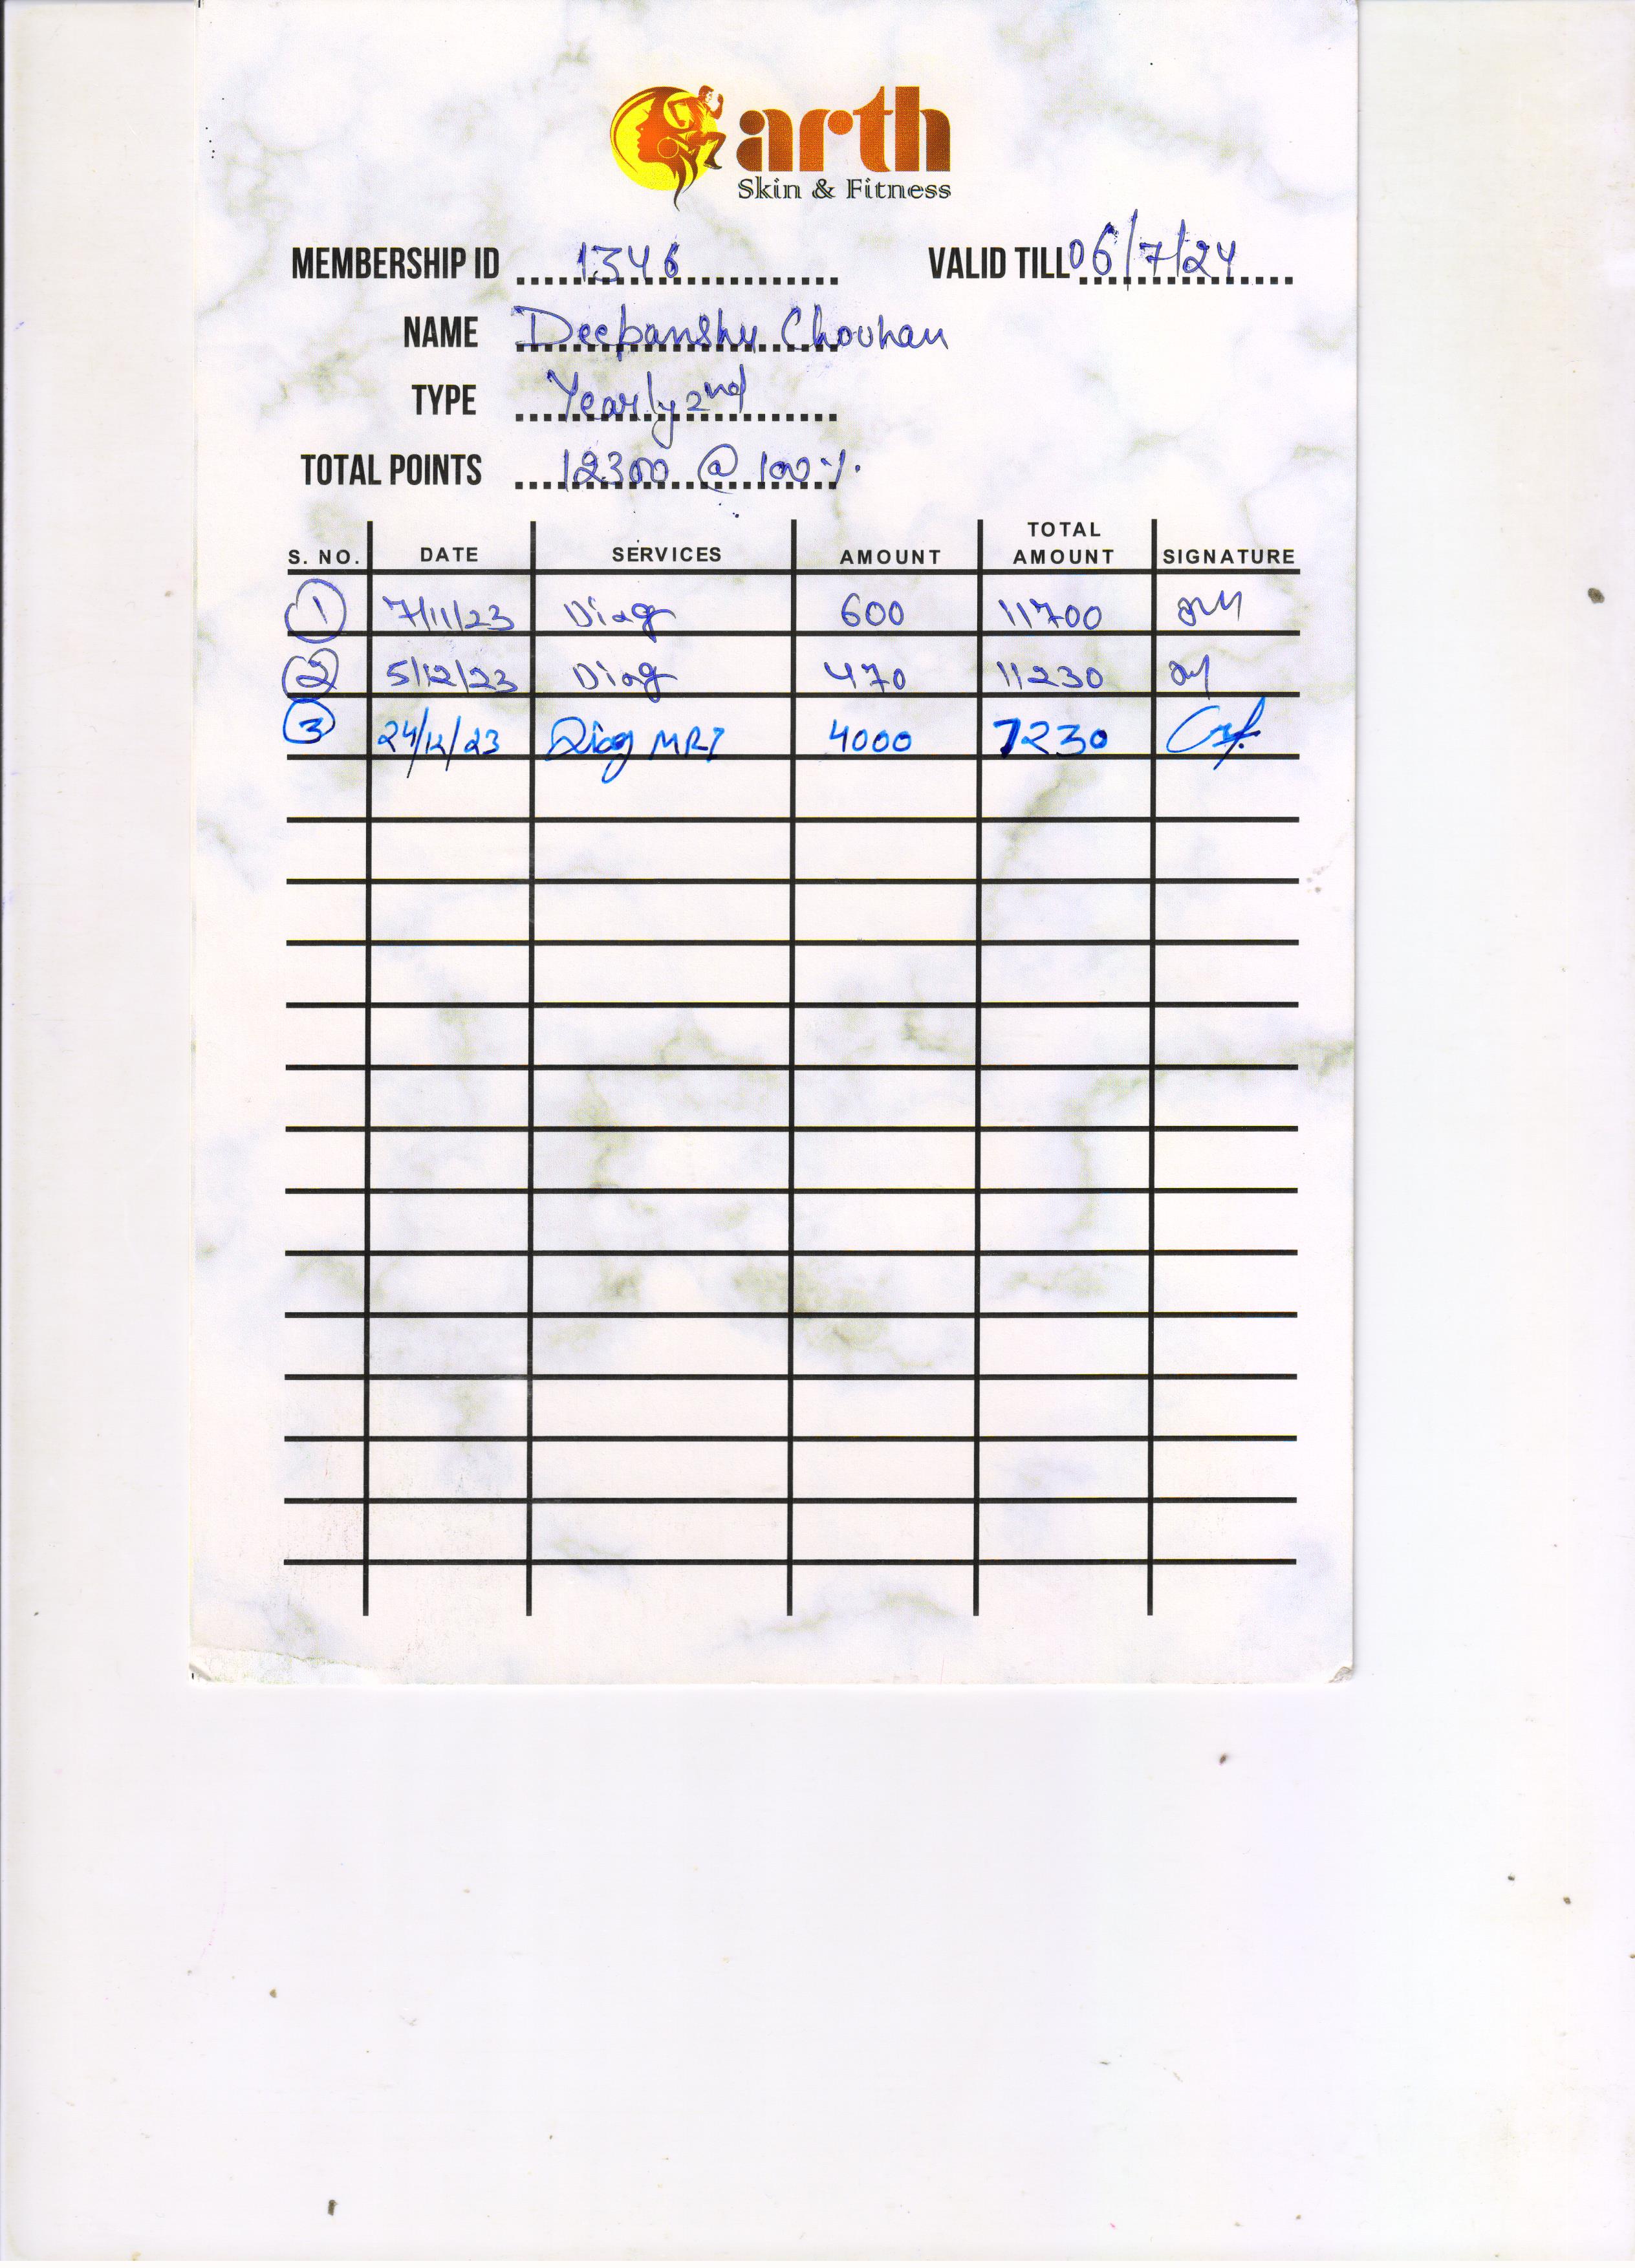 arth
Skin & Fitness
MEMBERSHIP ID 1346 VALID TILL 06/7/24
NAME Deepanshu Chouhan
TYPE Yearly 2nd
TOTAL POINTS 12300 @ 100%.
S. NO. DATE SERVICES AMOUNT TOTAL AMOUNT SIGNATURE
1 7/11/23 Diag 600 11700
2 5/12/23 Diag 470 11230
3 24/12/23 Diag MRI 4000 7230